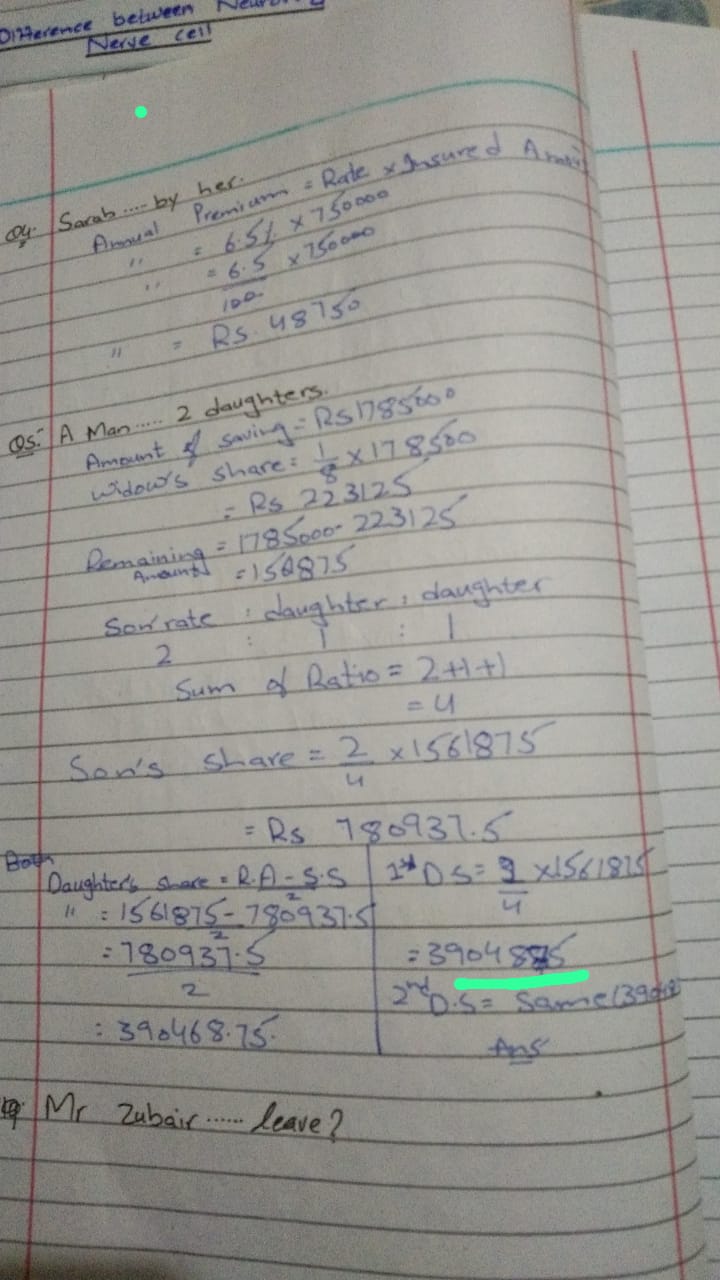 Difference between Neuron &
Nerve cell
Q4: Sarah .... by her.
Annual Premium = Rate x Insured Amou
" = 6.5% x 750000
" = 6.5/100 x 750000
" = Rs. 48750
Q5: A Man ..... 2 daughters.
Amount of saving = Rs 1785000
Widow's share = 1/8 x 178500
= Rs 223125
Remaining Amount = 1785000 - 223125
= 156875
Son' rate : daughter : daughter
2 : 1 : 1
Sum of Ratio = 2+1+1
= 4
Son's share = 2/4 x 1561875
= Rs 780937.5
Both
Daughter's share = R.A - S.S / 2
" = 1561875 - 780937.5 / 2
= 780937.5 / 2
= 390468.75
1st D S = x 1561875
4
= 3904
2nd D.S = Same (390
Ans
Mr Zubair ...... leave?